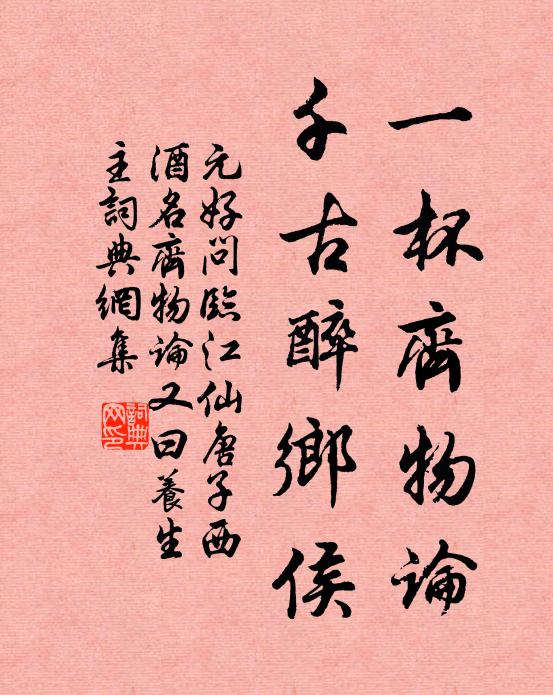 一杯齊物論
千古醉鄉侯
元好問臨江仙唐子西
酒名齊物論又曰養生
主詞典網集
詞典網印